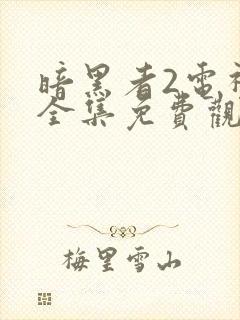 暗黑者2電視
全集免費觀
梅里雪山